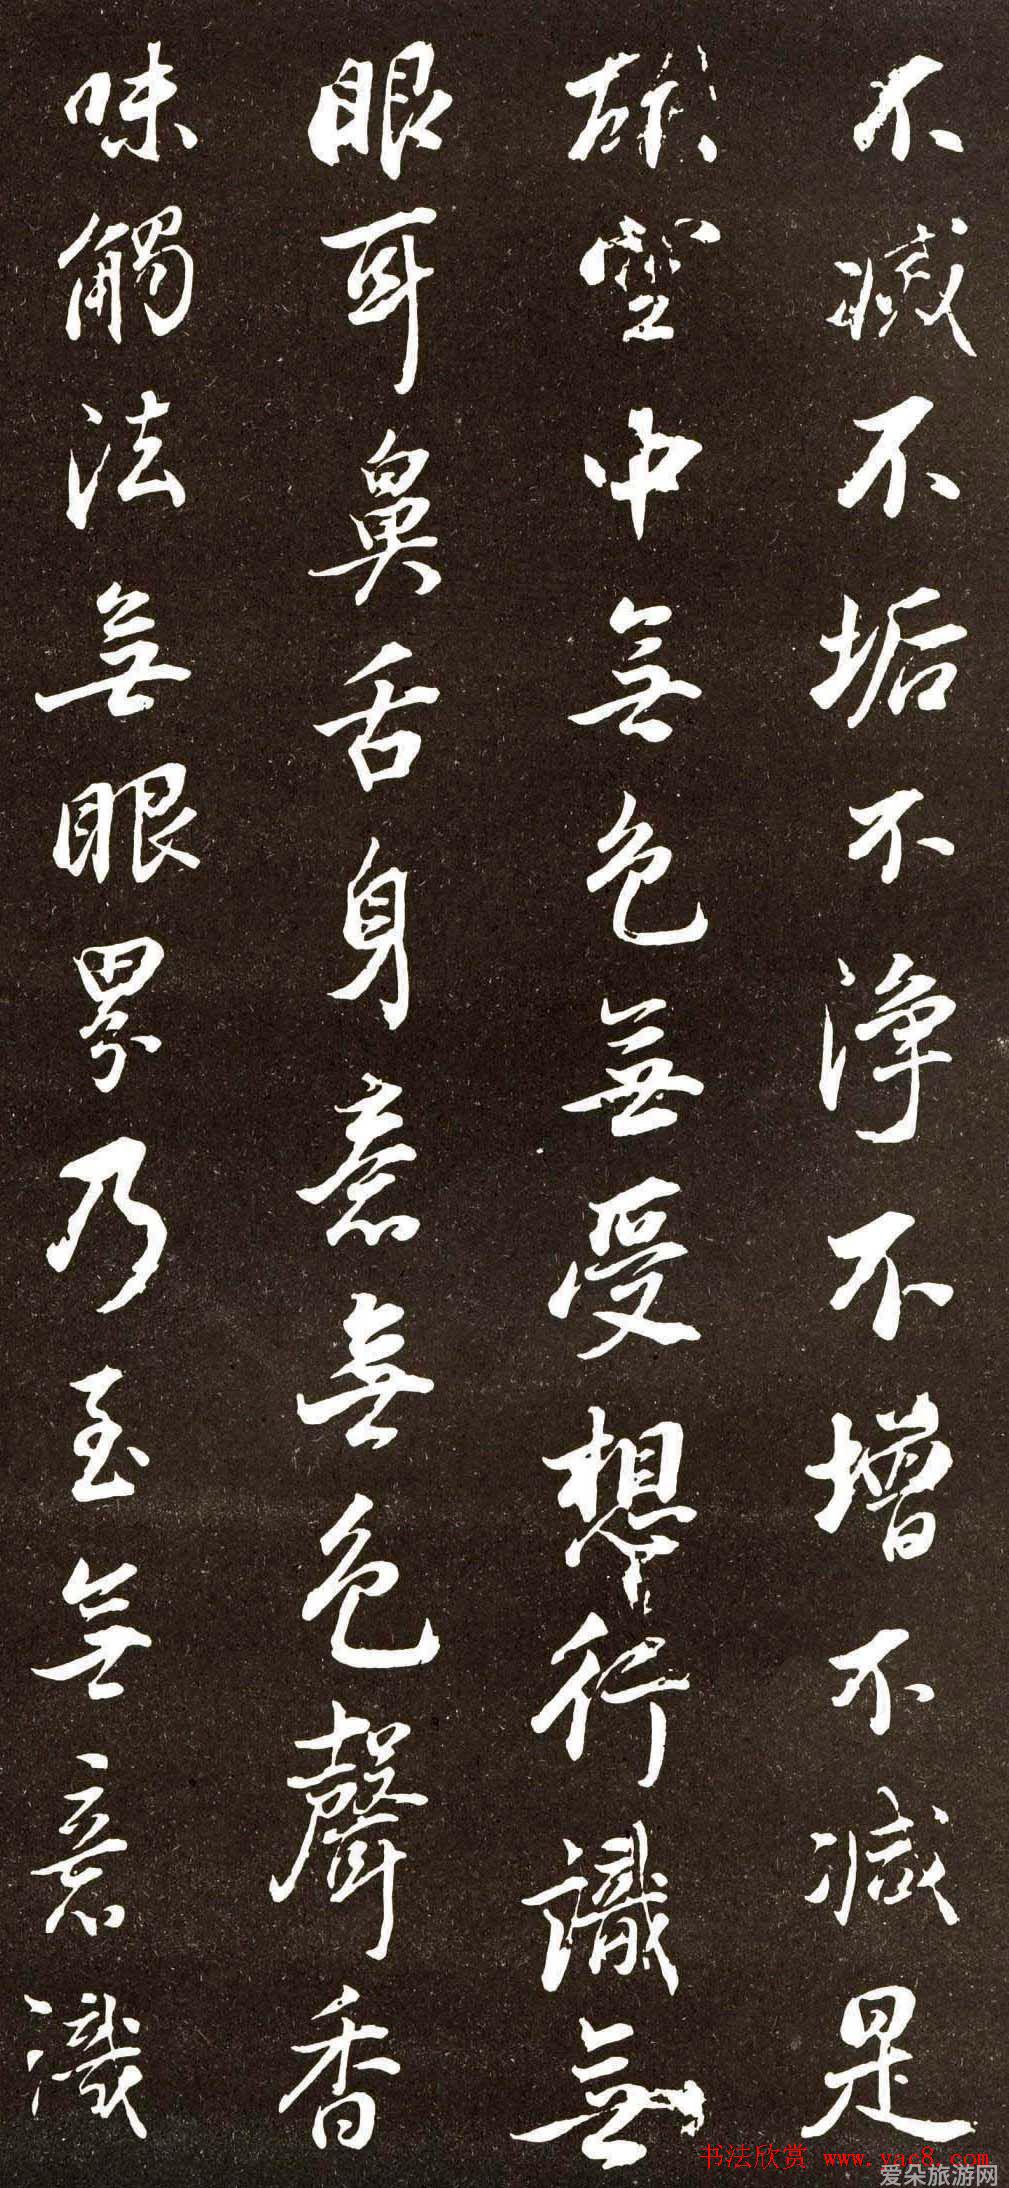 不滅不垢不淨不增不減是
故空中無色無受想行識無
眼耳鼻舌身意無色聲香
味觸法無眼界乃至無意識
书法欣赏 www.yac8.com
爱朵旅游网